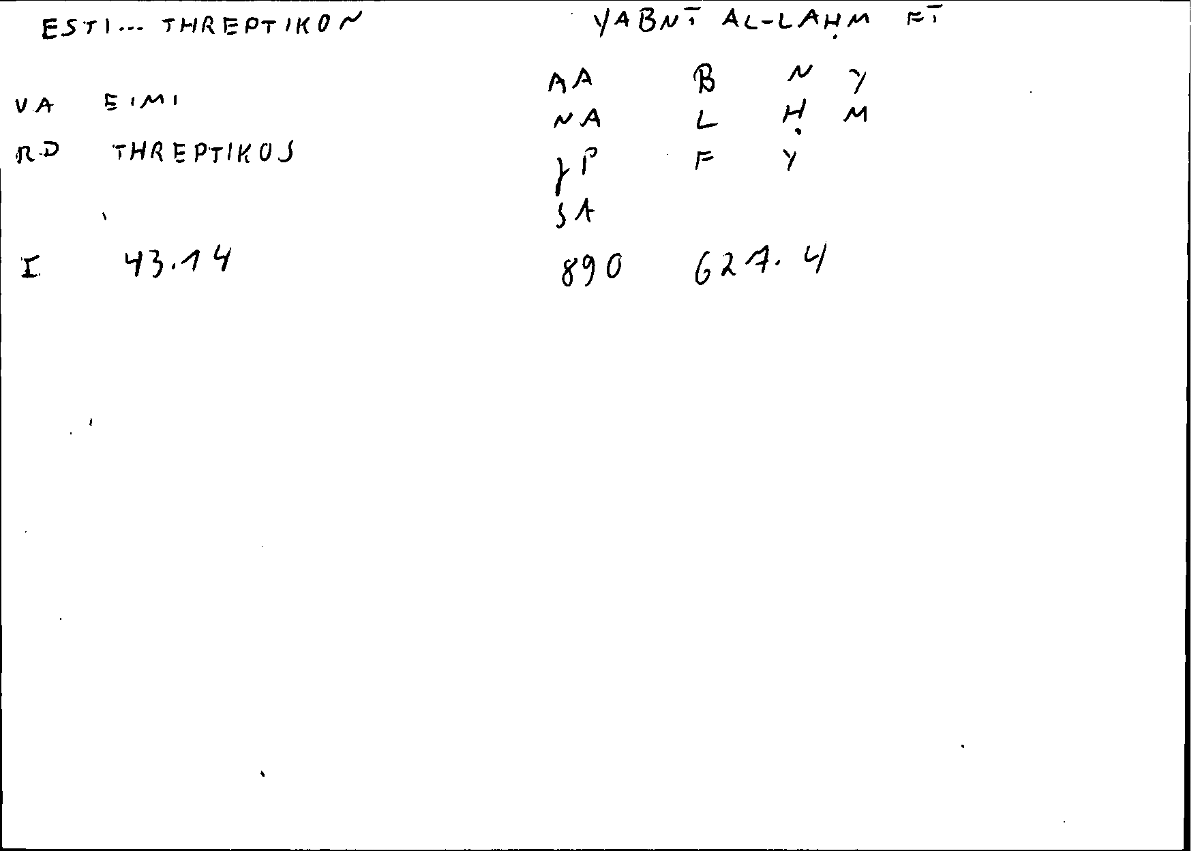 ESTI... THREPTIKON YABNĪ AL-LAḤM FĪ
VA EIMI AA B N Y
NA L Ḥ M
RD THREPTIKOS JP F Y
SA
I 43.14 890 627.4